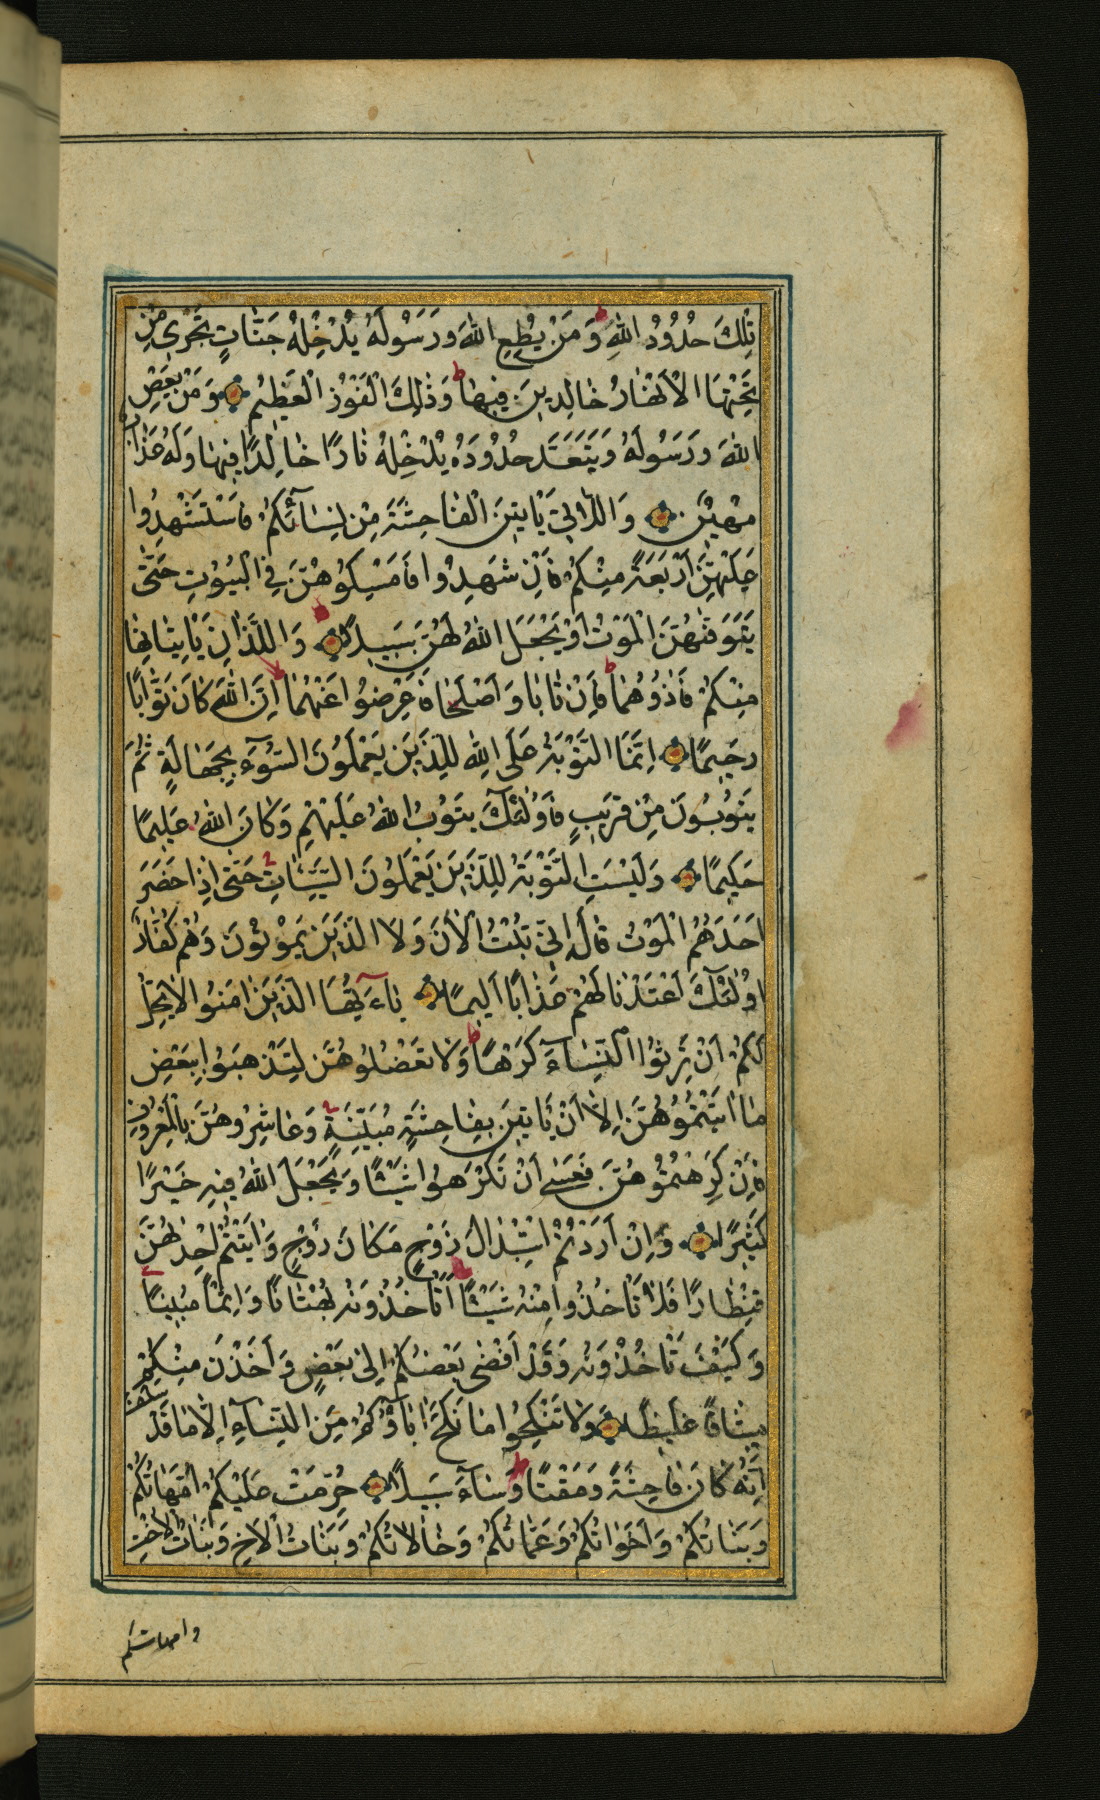 تِلْكَ حُدُودُ اللّٰهِ وَمَنْ يُطِعِ اللّٰهَ وَرَسُولَهُ يُدْخِلْهُ جَنَّاتٍ تَجْرِي مِنْ
تَحْتِهَا الْأَنْهَارُ خَالِدِينَ فِيهَا وَذٰلِكَ الْفَوْزُ الْعَظِيمُ وَمَنْ يَعْصِ
اللّٰهَ وَرَسُولَهُ وَيَتَعَدَّ حُدُودَهُ يُدْخِلْهُ نَارًا خَالِدًا فِيهَا وَلَهُ عَذَابٌ
مُهِينٌ وَاللَّاتِي يَأْتِينَ الْفَاحِشَةَ مِنْ نِسَائِكُمْ فَاسْتَشْهِدُوا
عَلَيْهِنَّ أَرْبَعَةً مِنْكُمْ فَإِنْ شَهِدُوا فَأَمْسِكُوهُنَّ فِي الْبُيُوتِ حَتَّى
يَتَوَفّٰهُنَّ الْمَوْتُ أَوْ يَجْعَلَ اللّٰهُ لَهُنَّ سَبِيلًا وَاللَّذَانِ يَأْتِيَانِهَا
مِنْكُمْ فَآذُوهُمَا فَإِنْ تَابَا وَأَصْلَحَا فَأَعْرِضُوا عَنْهُمَا إِنَّ اللّٰهَ كَانَ تَوَّابًا
رَحِيمًا إِنَّمَا التَّوْبَةُ عَلَى اللّٰهِ لِلَّذِينَ يَعْمَلُونَ السُّوءَ بِجَهَالَةٍ ثُمَّ
يَتُوبُونَ مِنْ قَرِيبٍ فَأُولٰئِكَ يَتُوبُ اللّٰهُ عَلَيْهِمْ وَكَانَ اللّٰهُ عَلِيمًا
حَكِيمًا وَلَيْسَتِ التَّوْبَةُ لِلَّذِينَ يَعْمَلُونَ السَّيِّئَاتِ حَتَّى إِذَا حَضَرَ
أَحَدَهُمُ الْمَوْتُ قَالَ إِنِّي تُبْتُ الْآنَ وَلَا الَّذِينَ يَمُوتُونَ وَهُمْ كُفَّارٌ
أُولٰئِكَ أَعْتَدْنَا لَهُمْ عَذَابًا أَلِيمًا يَاءَيُّهَا الَّذِينَ آمَنُوا لَا يَحِلُّ
لَكُمْ أَنْ تَرِثُوا النِّسَاءَ كَرْهًا وَلَا تَعْضُلُوهُنَّ لِتَذْهَبُوا بِبَعْضِ
مَا آتَيْتُمُوهُنَّ إِلَّا أَنْ يَأْتِينَ بِفَاحِشَةٍ مُبَيِّنَةٍ وَعَاشِرُوهُنَّ بِالْمَعْرُوفِ
فَإِنْ كَرِهْتُمُوهُنَّ فَعَسَى أَنْ تَكْرَهُوا شَيْئًا وَيَجْعَلَ اللّٰهُ فِيهِ خَيْرًا
كَثِيرًا وَإِنْ أَرَدْتُمُ اسْتِبْدَالَ زَوْجٍ مَكَانَ زَوْجٍ وَآتَيْتُمْ إِحْدٰهُنَّ
قِنْطَارًا فَلَا تَأْخُذُوا مِنْهُ شَيْئًا أَتَأْخُذُونَهُ بُهْتَانًا وَإِثْمًا مُبِينًا
وَكَيْفَ تَأْخُذُونَهُ وَقَدْ أَفْضَى بَعْضُكُمْ إِلَى بَعْضٍ وَأَخَذْنَ مِنْكُمْ
مِيثَاقًا غَلِيظًا وَلَا تَنْكِحُوا مَا نَكَحَ آبَاؤُكُمْ مِنَ النِّسَاءِ إِلَّا مَا قَدْ سَلَفَ
إِنَّهُ كَانَ فَاحِشَةً وَمَقْتًا وَسَاءَ سَبِيلًا حُرِّمَتْ عَلَيْكُمْ أُمَّهَاتُكُمْ
وَبَنَاتُكُمْ وَأَخَوَاتُكُمْ وَعَمَّاتُكُمْ وَخَالَاتُكُمْ وَبَنَاتُ الْأَخِ وَبَنَاتُ الْأُخْتِ
وامهاتكم